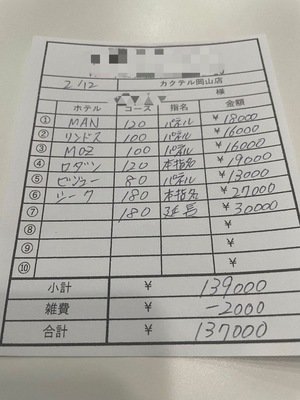 2/12 カクテル岡山店
様
ホテル コース 指名 金額
① MAN 120 パネル ¥18000
② リンドス 100 パネル ¥16000
③ MOZ 100 パネル ¥16000
④ ロダン 120 本指名 ¥19000
⑤ ビジュー 80 パネル ¥13000
⑥ シーク 180 本指名 ¥27000
⑦ 180 延長 ¥30000
⑧ ¥
⑨ ¥
⑩ ¥
小計 ¥ 139000
雑費 ¥ -2000
合計 ¥ 137000